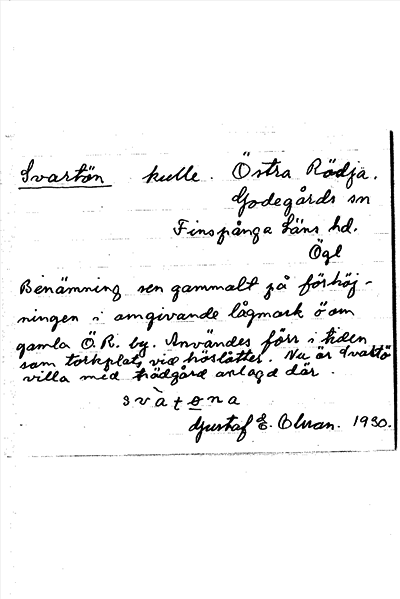 Svartön kulle. Östra Rödja.
Godegårds sn
Finspånga läns hd.
Ögl
Benämning sen gammalt på förhöj-
ningen i omgivande lågmark ö om
gamla Ö.R. by. Användes förr i tiden
som torkplats vid höslåtter. Nu är Svartö
villa med trädgård anlagd där.
svàtona
Gustaf E. Olson. 1930.